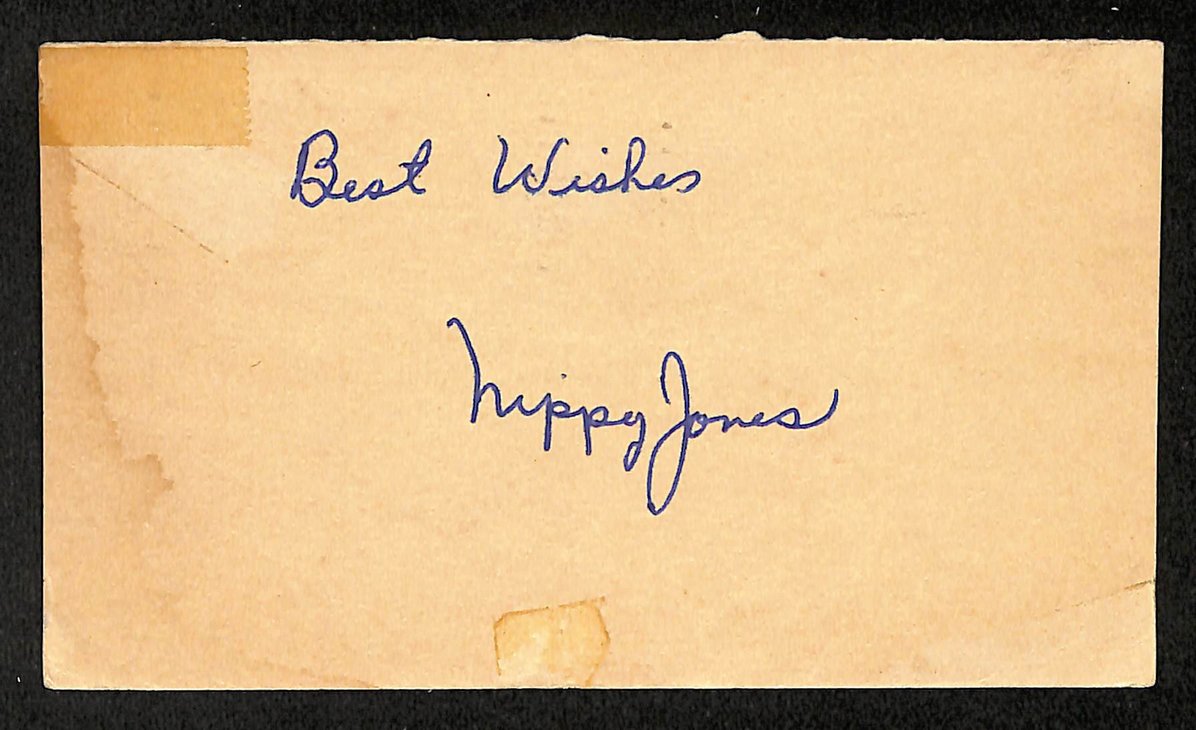 Best Wishes
Nippy Jones